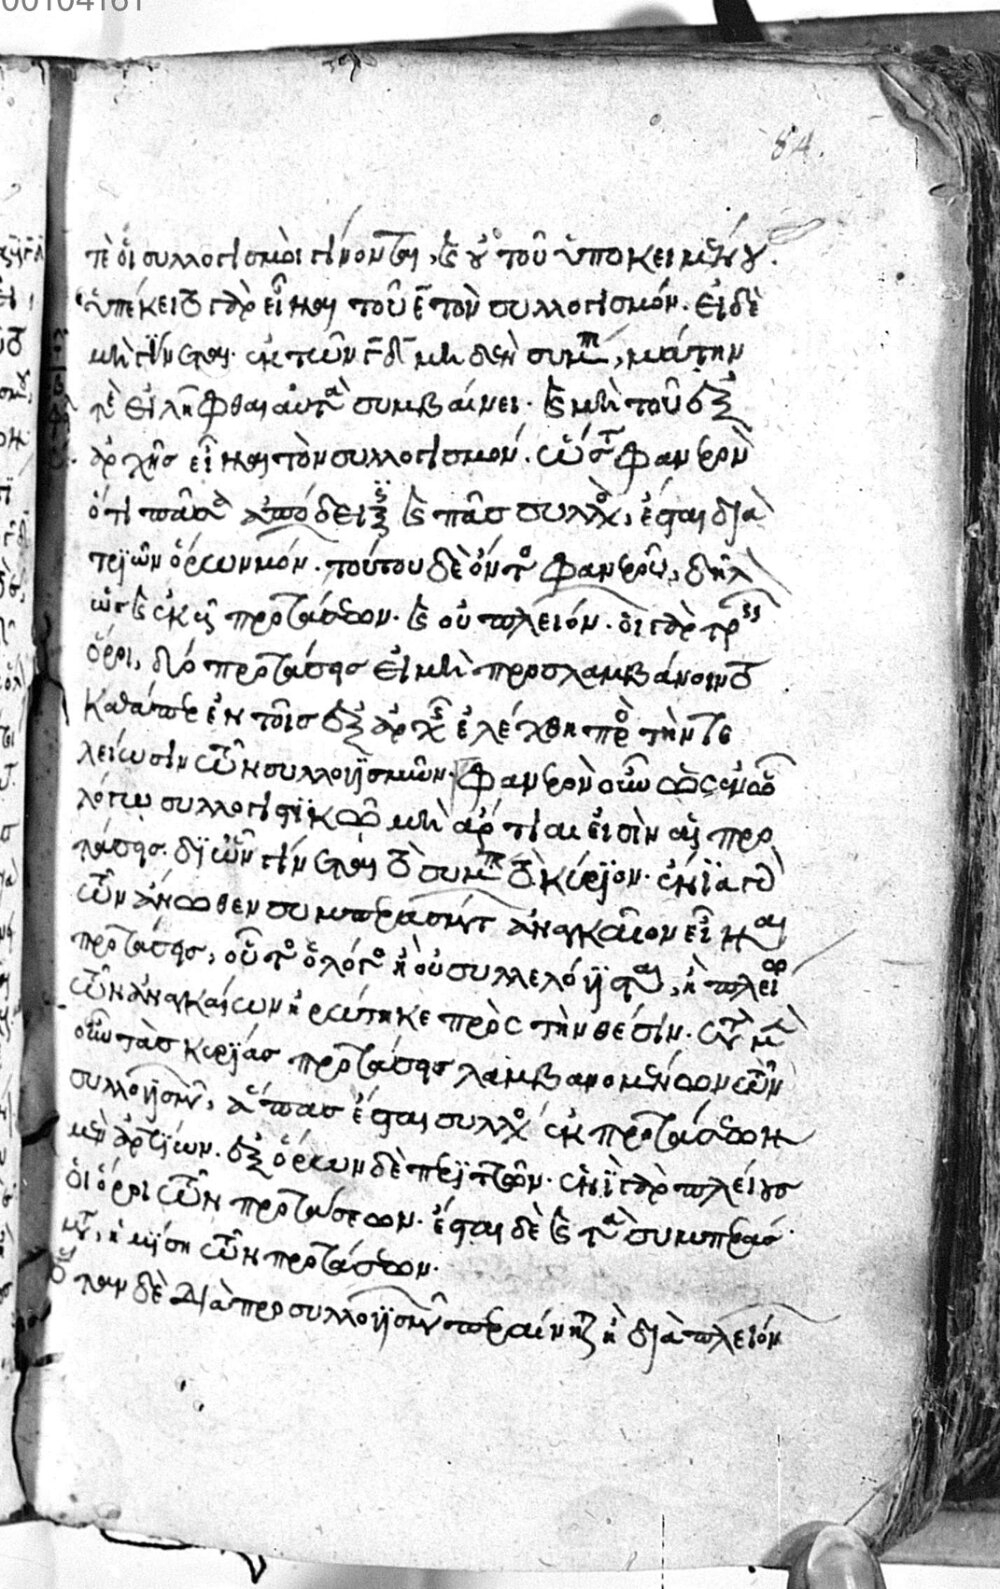 00104161
84.
τὲ ὁι συλλογισμὸι γίνονται, καὶ οὐ τοῦ ὑποκειμένου.
ὑπέκειτο γὰρ εἶναι τοῦ ε̄ τὸν συλλογισμόν. Εἰ δὲ
μὴ γίνεται ἐκ τῶν γ̄ δ̄ μηδὲν συμπ, μάτην
τὲ εἰλῆφθαι ἀυτὰ συμβαίνει. καὶ μὴ τοῦ ἐξ
ἀρχῆς εἶναι τὸν συλλογισμόν. ὥστε φανερὸν
ὅτι πᾶσα ἀπόδειξις καὶ πᾶς συλλο, ἔσται διὰ
τριῶν ὅρων μόν. τούτου δὲ ὄντος φανεροῦ, δῆλ
ὡς καὶ ἐκ β προτάσεων. καὶ οὐ πλειόν. ὁι γὰρ τρεῖς
ὅροι, δύο προτάσεις εἰ μὴ προσλαμβάνοιτο
καθάπερ ἐν τοῖς ἐξ ἀρχῆς ἐλέχθη πρὸ τὴν τε
λείωσιν τῶν συλλογισμῶν. φανερὸν οὖν ὡς ἐν ὧ
λόγω συλλογιστικῶ μὴ ἄρτιαι εἰσὶν αἱ προ
τάσεις. δι ὧν γίνεται τὸ συμπ τὸ κύριον. ἔνια γὰρ
τῶν ἄνωθεν συμπερασμάτ ἀναγκαῖον εἶναι
προτάσεις, οὗτος ὁ λόγος ἢ οὐ συλλελόγισται, ἢ πλείω
τῶν ἀναγκαίων ἠρώτηκε πρὸς τὴν θέσιν. κατὰ μὲν
οὖν τὰς κυρίας προτάσεις λαμβανομένων τῶν
συλλογισμῶν, ἅπας ἔσται συλλο ἐκ προτάσεων
μὲν ἀρτίων. ἐξ ὅρων δὲ περιττῶν. ἑνὶ γὰρ πλείους
ὁι ὅροι τῶν προτάσεων. ἔσται δὲ καὶ τὰ συμπερασ
μτ, ἡμίση τῶν προτάσεων.
Ὅταν δὲ διὰ προσυλλογισμῶν περαίνηται ἢ διὰ πλειόν